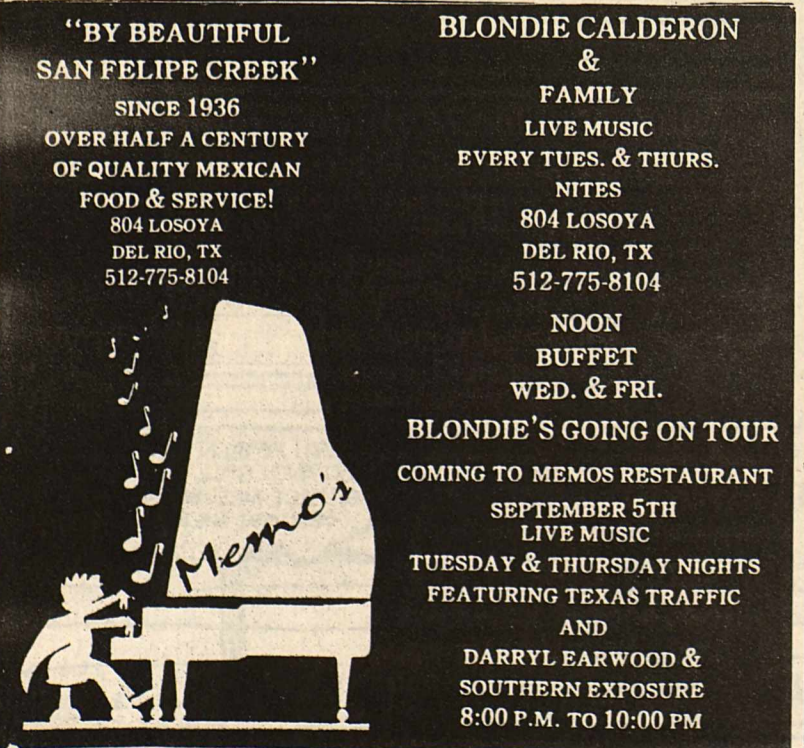 “BY BEAUTIFUL
SAN FELIPE CREEK”
SINCE 1936
OVER HALF A CENTURY
OF QUALITY MEXICAN
FOOD & SERVICE!
804 LOSOYA
DEL RIO, TX
512-775-8104
Memo's
BLONDIE CALDERON
&
FAMILY
LIVE MUSIC
EVERY TUES. & THURS.
NITES
804 LOSOYA
DEL RIO, TX
512-775-8104
NOON
BUFFET
WED. & FRI.
BLONDIE'S GOING ON TOUR
COMING TO MEMOS RESTAURANT
SEPTEMBER 5TH
LIVE MUSIC
TUESDAY & THURSDAY NIGHTS
FEATURING TEXA$ TRAFFIC
AND
DARRYL EARWOOD &
SOUTHERN EXPOSURE
8:00 P.M. TO 10:00 PM